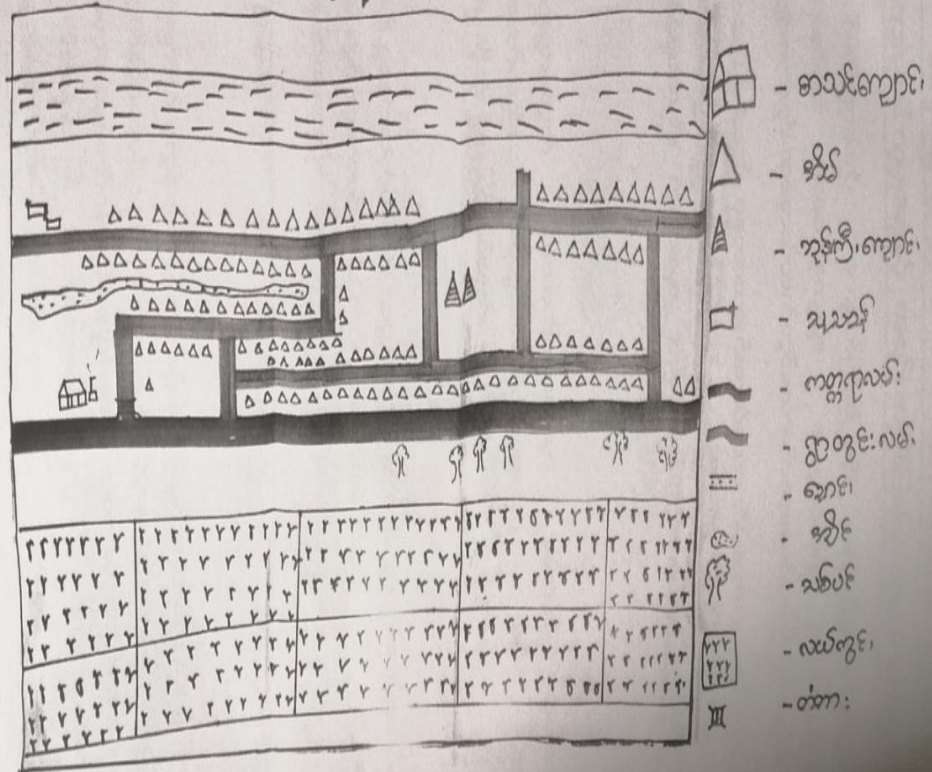 - စာသင်ကျောင်း
- အိမ်
- ဘုန်းကြီးကျောင်း
- သုသာန်
- ကတ္တရာလမ်း
- ရွာတွင်းလမ်း
- ချောင်း
- အိုင်
- သစ်ပင်
- လယ်ကွင်း
- တံတား